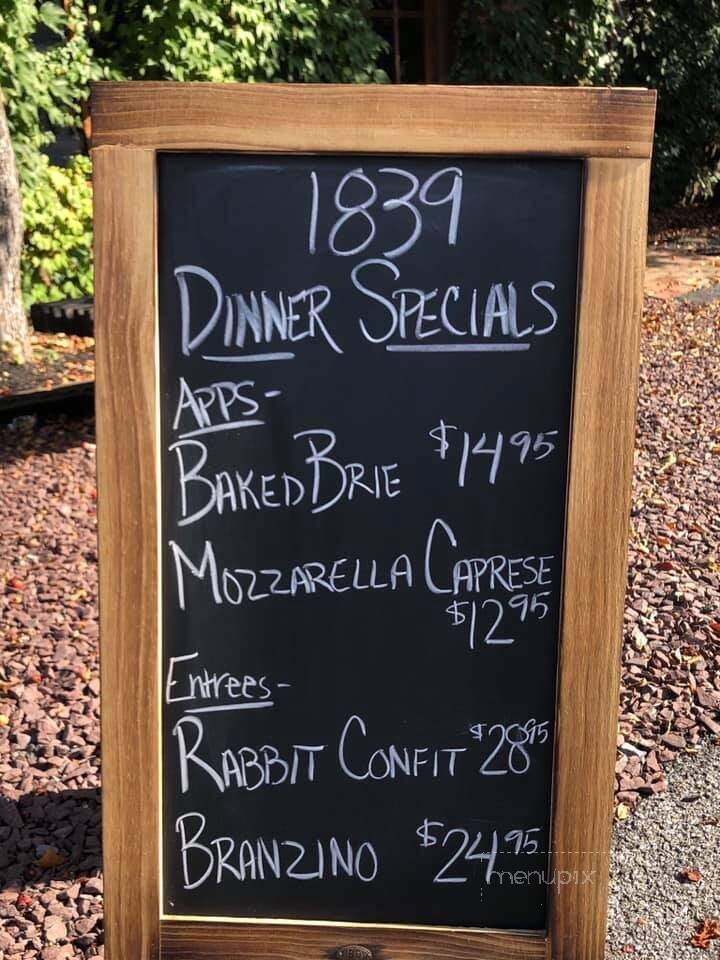 1839
DINNER SPECIALS
APPS-
BAKED BRIE $14.95
MOZZARELLA CAPRESE
$12.95
Entrees-
RABBIT CONFIT $28.95
BRANZINO $24.95
menupix